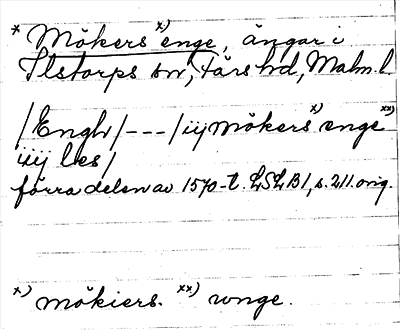 * Mökers x) enge, ängar i
Ilstorps sn, Färs hd, Malm. l.
/Engh/ --- /iij mökers x) enge xx)
iiij les/
förra delen av 1570-t. LSLB 1, s. 211. orig.
x) mökiers. xx) wnge.